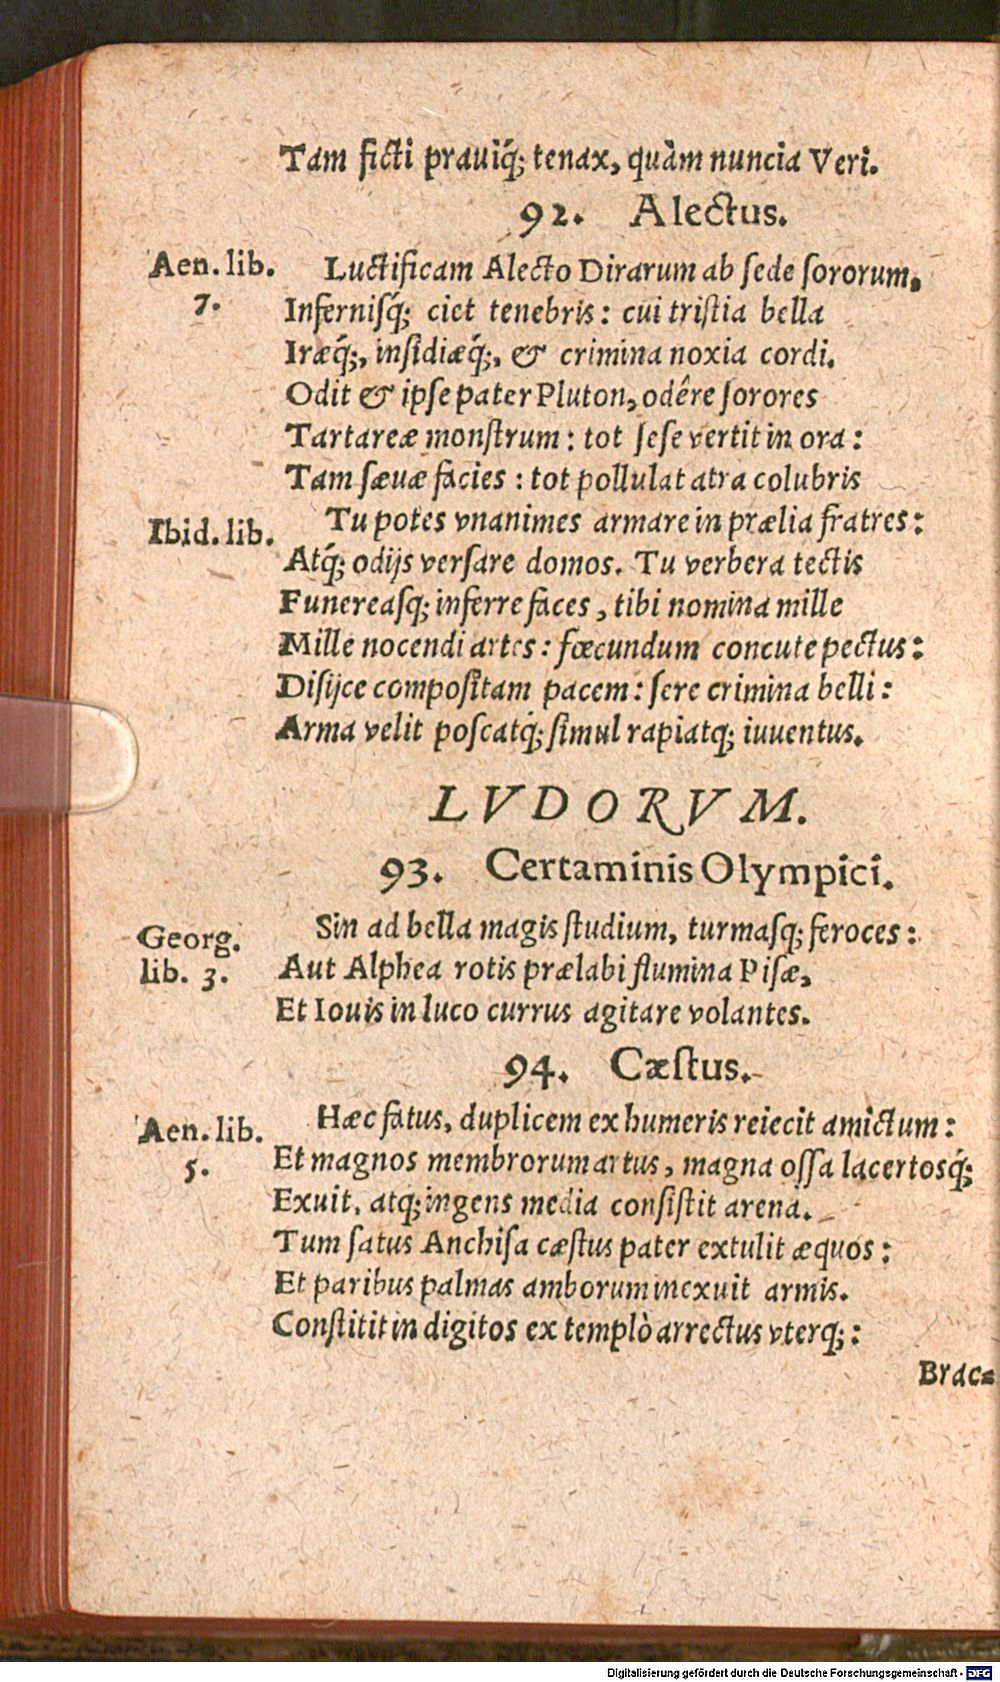 Tam ficti prauiq́; tenax, quàm nuncia Veri.
92. Alectus.
Aen. lib. 7.
Luctificam Alecto Dirarum ab ſede ſororum.
Infernisq́; ciet tenebris: cui triſtia bella
Iræq́;, inſidiæq́;, & crimina noxia cordi.
Odit & ipſe pater Pluton, odêre ſorores
Tartareæ monſtrum: tot ſeſe vertit in ora:
Tam ſæuæ facies: tot pollulat atra colubris
Ibid. lib.
Tu potes vnanimes armare in prælia fratres:
Atq́; odijs verſare domos. Tu verbera tectis
Funereaſq; inferre faces, tibi nomina mille
Mille nocendi artes: fœcundum concute pectus:
Diſijce compoſitam pacem: ſere crimina belli:
Arma velit poſcatq́; ſimul rapiatq; iuuentus.
LVDORVM.
93. Certaminis Olympici.
Georg. lib. 3.
Sin ad bella magis ſtudium, turmaſq; feroces:
Aut Alphea rotis prælabi flumina Piſæ,
Et Iouis in luco currus agitare volantes.
94. Cæſtus.
Aen. lib. 5.
Hæc fatus, duplicem ex humeris reiecit amictum:
Et magnos membrorum artus, magna oſſa lacertosq́;
Exuit, atq; ingens media conſiſtit arena.
Tum ſatus Anchiſa cæſtus pater extulit æquos:
Et paribus palmas amborum inexuit armis.
Conſtitit in digitos ex templò arrectus vterq;:
Brac=
Digitalisierung gefördert durch die Deutsche Forschungsgemeinschaft - DFG